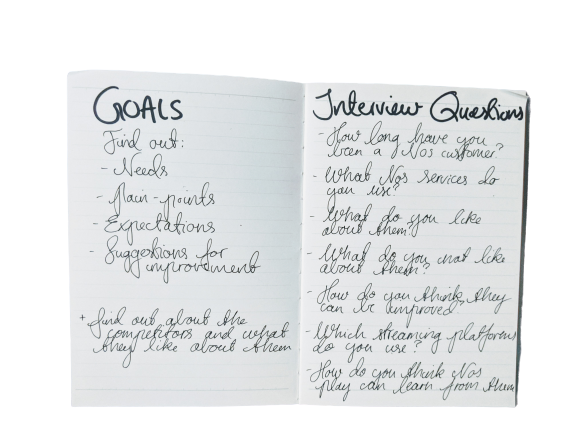 GOALS
Find out:
- Needs
- Plain-points
- Expectations
- Suggestions for
improvement
+ find out about the
competitors and what
they like about them
Interview Questions
- How long have you
been a Nos customer?
- What Nos services do
you use?
- What do you like
about them?
- What do you not like
about them?
- How do you think they
can be improved?
- Which streaming platforms
do you use?
- How do you think Nos
play can learn from them